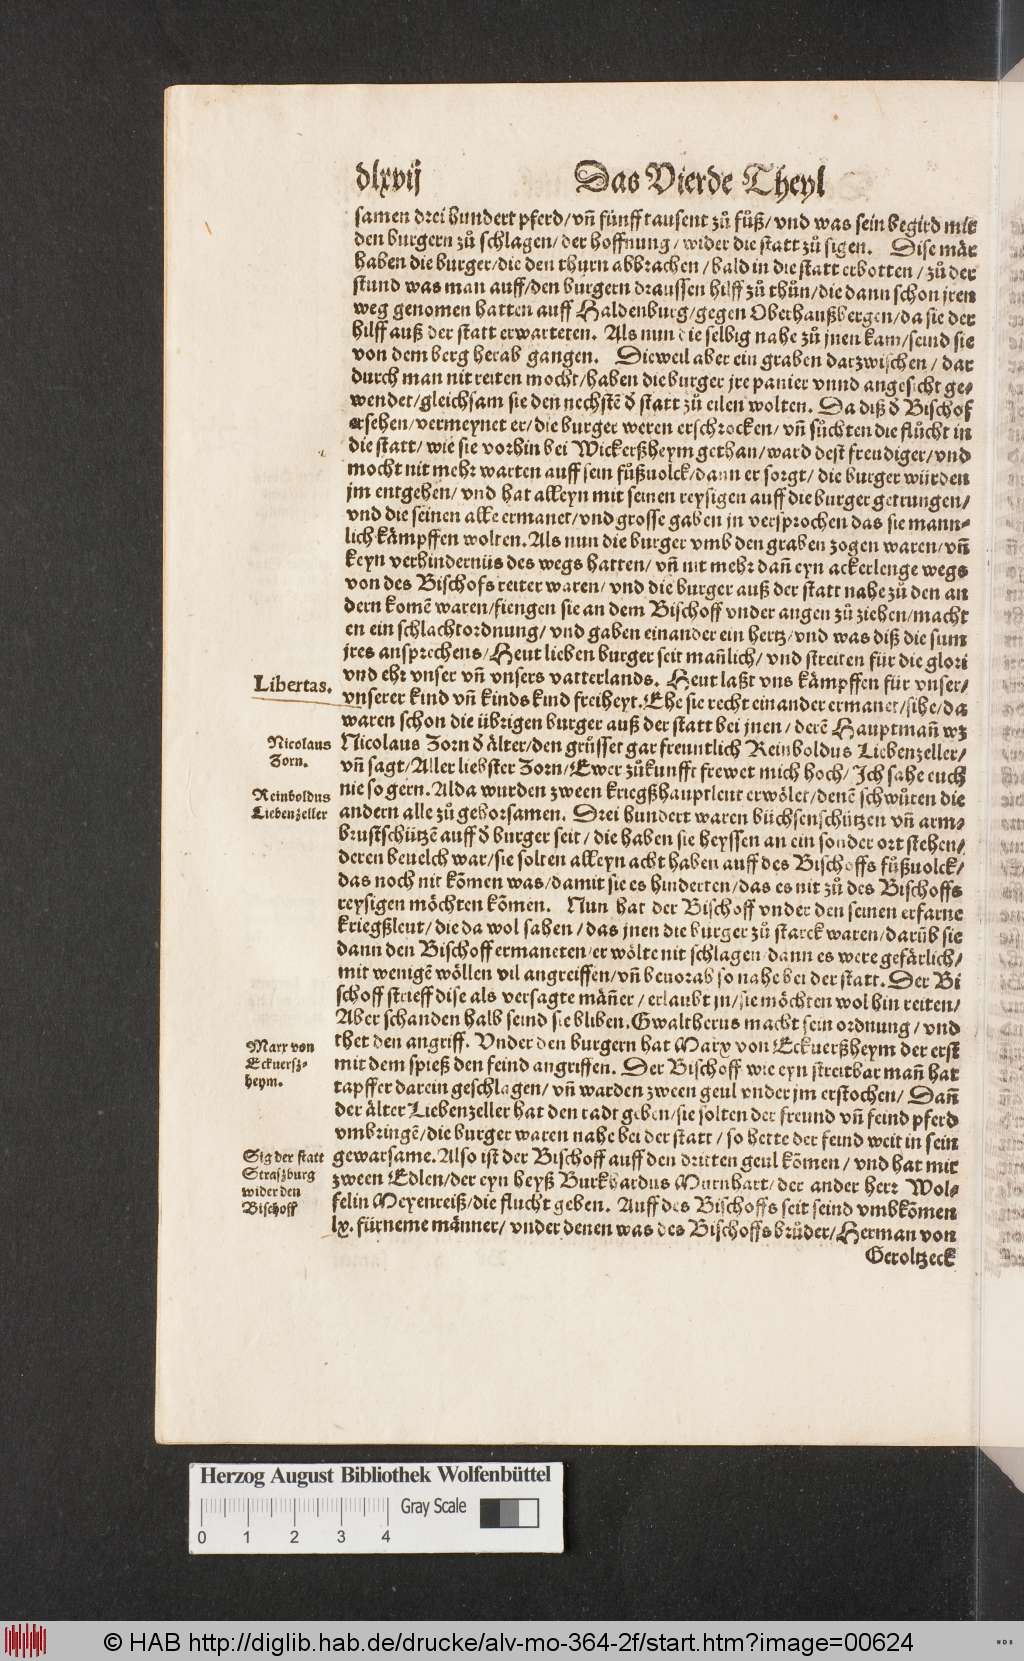 dlxvij Das Vierde Theyl
samen drei hundert pferd/vñ fünfftausent zů fůß/vnd was sein begird mit
den burgern zů schlagen/der hoffnung/wider die statt zů sigen. Dise mär
haben die burger/die den thurn abbrachen/bald in die statt erbotten/zů der
stund was man auff/den burgern draussen hilff zů thůn/die dann schon jren
weg genomen hatten auff Haldenburg/gegen Oberhaußbergen/da sie der
hilff auß der statt erwarteten. Als nun die selbig nahe zů jnen kam/seind sie
von dem berg herab gangen. Dieweil aber ein graben darzwischen/dar
durch man nit reiten mocht/haben die burger jre panier vnnd angesicht ge-
wendet/gleichsam sie den nechstẽ d̃ statt zů eilen wolten. Da diß d̃ Bischof
ersehen/vermeynet er/die burger weren erschrocken/vñ sůchten die flucht in
die statt/wie sie vorhin bei Wickerßheym gethan/ward dest freudiger/vnd
mocht nit mehr warten auff sein fůßuolck/dann er sorgt/die burger würden
jm entgehen/vnd hat alleyn mit seinen reysigen auff die burger getrungen/
vnd die seinen alle ermanet/vnd grosse gaben jn versprochen das sie mann-
lich kämpffen wolten. Als nun die burger vmb den graben zogen waren/vñ
keyn verhindernüs des wegs hatten/vñ nit mehr dañ eyn ackerlenge wegs
von des Bischofs reiter waren/vnd die burger auß der statt nahe zů den an
dern komẽ waren/fiengen sie an dem Bischoff vnder augen zů ziehen/macht
en ein schlachtordnung/vnd gaben einander ein hertz/vnd was diß die sum
jres ansprechens/Heut lieben burger seit mañlich/vnd streiten für die glori
vnd ehr vnser vñ vnsers vatterlands. Heut laßt vns kämpffen für vnser/
Libertas.
vnserer kind vñ kinds kind freiheyt. Ehe sie recht einander ermanet/sihe/da
waren schon die übrigen burger auß der statt bei jnen/derẽ Hauptmañ wz
Nicolaus
Zorn.
Nicolaus Zorn d̃ älter/den grůsset gar freuntlich Reinboldus Liebenzeller/
vñ sagt/Aller liebster Zorn/Ewer zůkunfft frewet mich hoch/Ich sahe euch
Reinboldus
Liebenzeller
nie so gern. Alda wurden zween kriegßhauptleut erwölet/denẽ schwůren die
andern alle zů gehorsamen. Drei hundert waren büchsenschützen vñ arm-
brustschützẽ auff d̃ burger seit/die haben sie heyssen an ein sonder ort stehen/
deren beuelch war/sie solten alleyn acht haben auff des Bischoffs fůßuolck/
das noch nit kõmen was/damit sie es hinderten/das es nit zů des Bischoffs
reysigen möchten kõmen. Nun hat der Bischoff vnder den seinen erfarne
kriegßleut/die da wol sahen/das jnen die burger zů starck waren/darũb sie
dann den Bischoff ermaneten/er wölte nit schlagen/dann es were gefärlich/
mit wenigẽ wöllen vil angreiffen/vñ beuorab so nahe bei der statt. Der Bi
schoff strieff dise als versagte mäñer/erlaubt jn/sie möchten wol hin reiten/
Aber schanden halb seind sie bliben. Gwaltherus macht sein ordnung/vnd
Marx von
Eckuersz-
heym.
thet den angriff. Vnder den burgern hat Marx von Eckuerßheym der erst
mit dem spieß den feind angriffen. Der Bischoff wie eyn streitbar mañ hat
tapffer darein geschlagen/vñ warden zween geul vnder jm erstochen/Dañ
der älter Liebenzeller hat den radt geben/sie solten der freund vñ feind pferd
vmbringẽ/die burger waren nahe bei der statt/so hette der feind weit in sein
Sig der statt
Straszburg
wider den
Bischoff
gewarsame. Also ist der Bischoff auff den dritten geul kõmen/vnd hat mit
zween Edlen/der eyn heyß Burkhardus Murnhart/der ander herr Wol-
felin Meyenreiß/die flucht geben. Auff des Bischoffs seit seind vmbkõmen
lx. fürneme männer/vnder denen was des Bischoffs brůder/Herman von
Geroltzeck
Herzog August Bibliothek Wolfenbüttel
0 1 2 3 4 Gray Scale
© HAB http://diglib.hab.de/drucke/alv-mo-364-2f/start.htm?image=00624